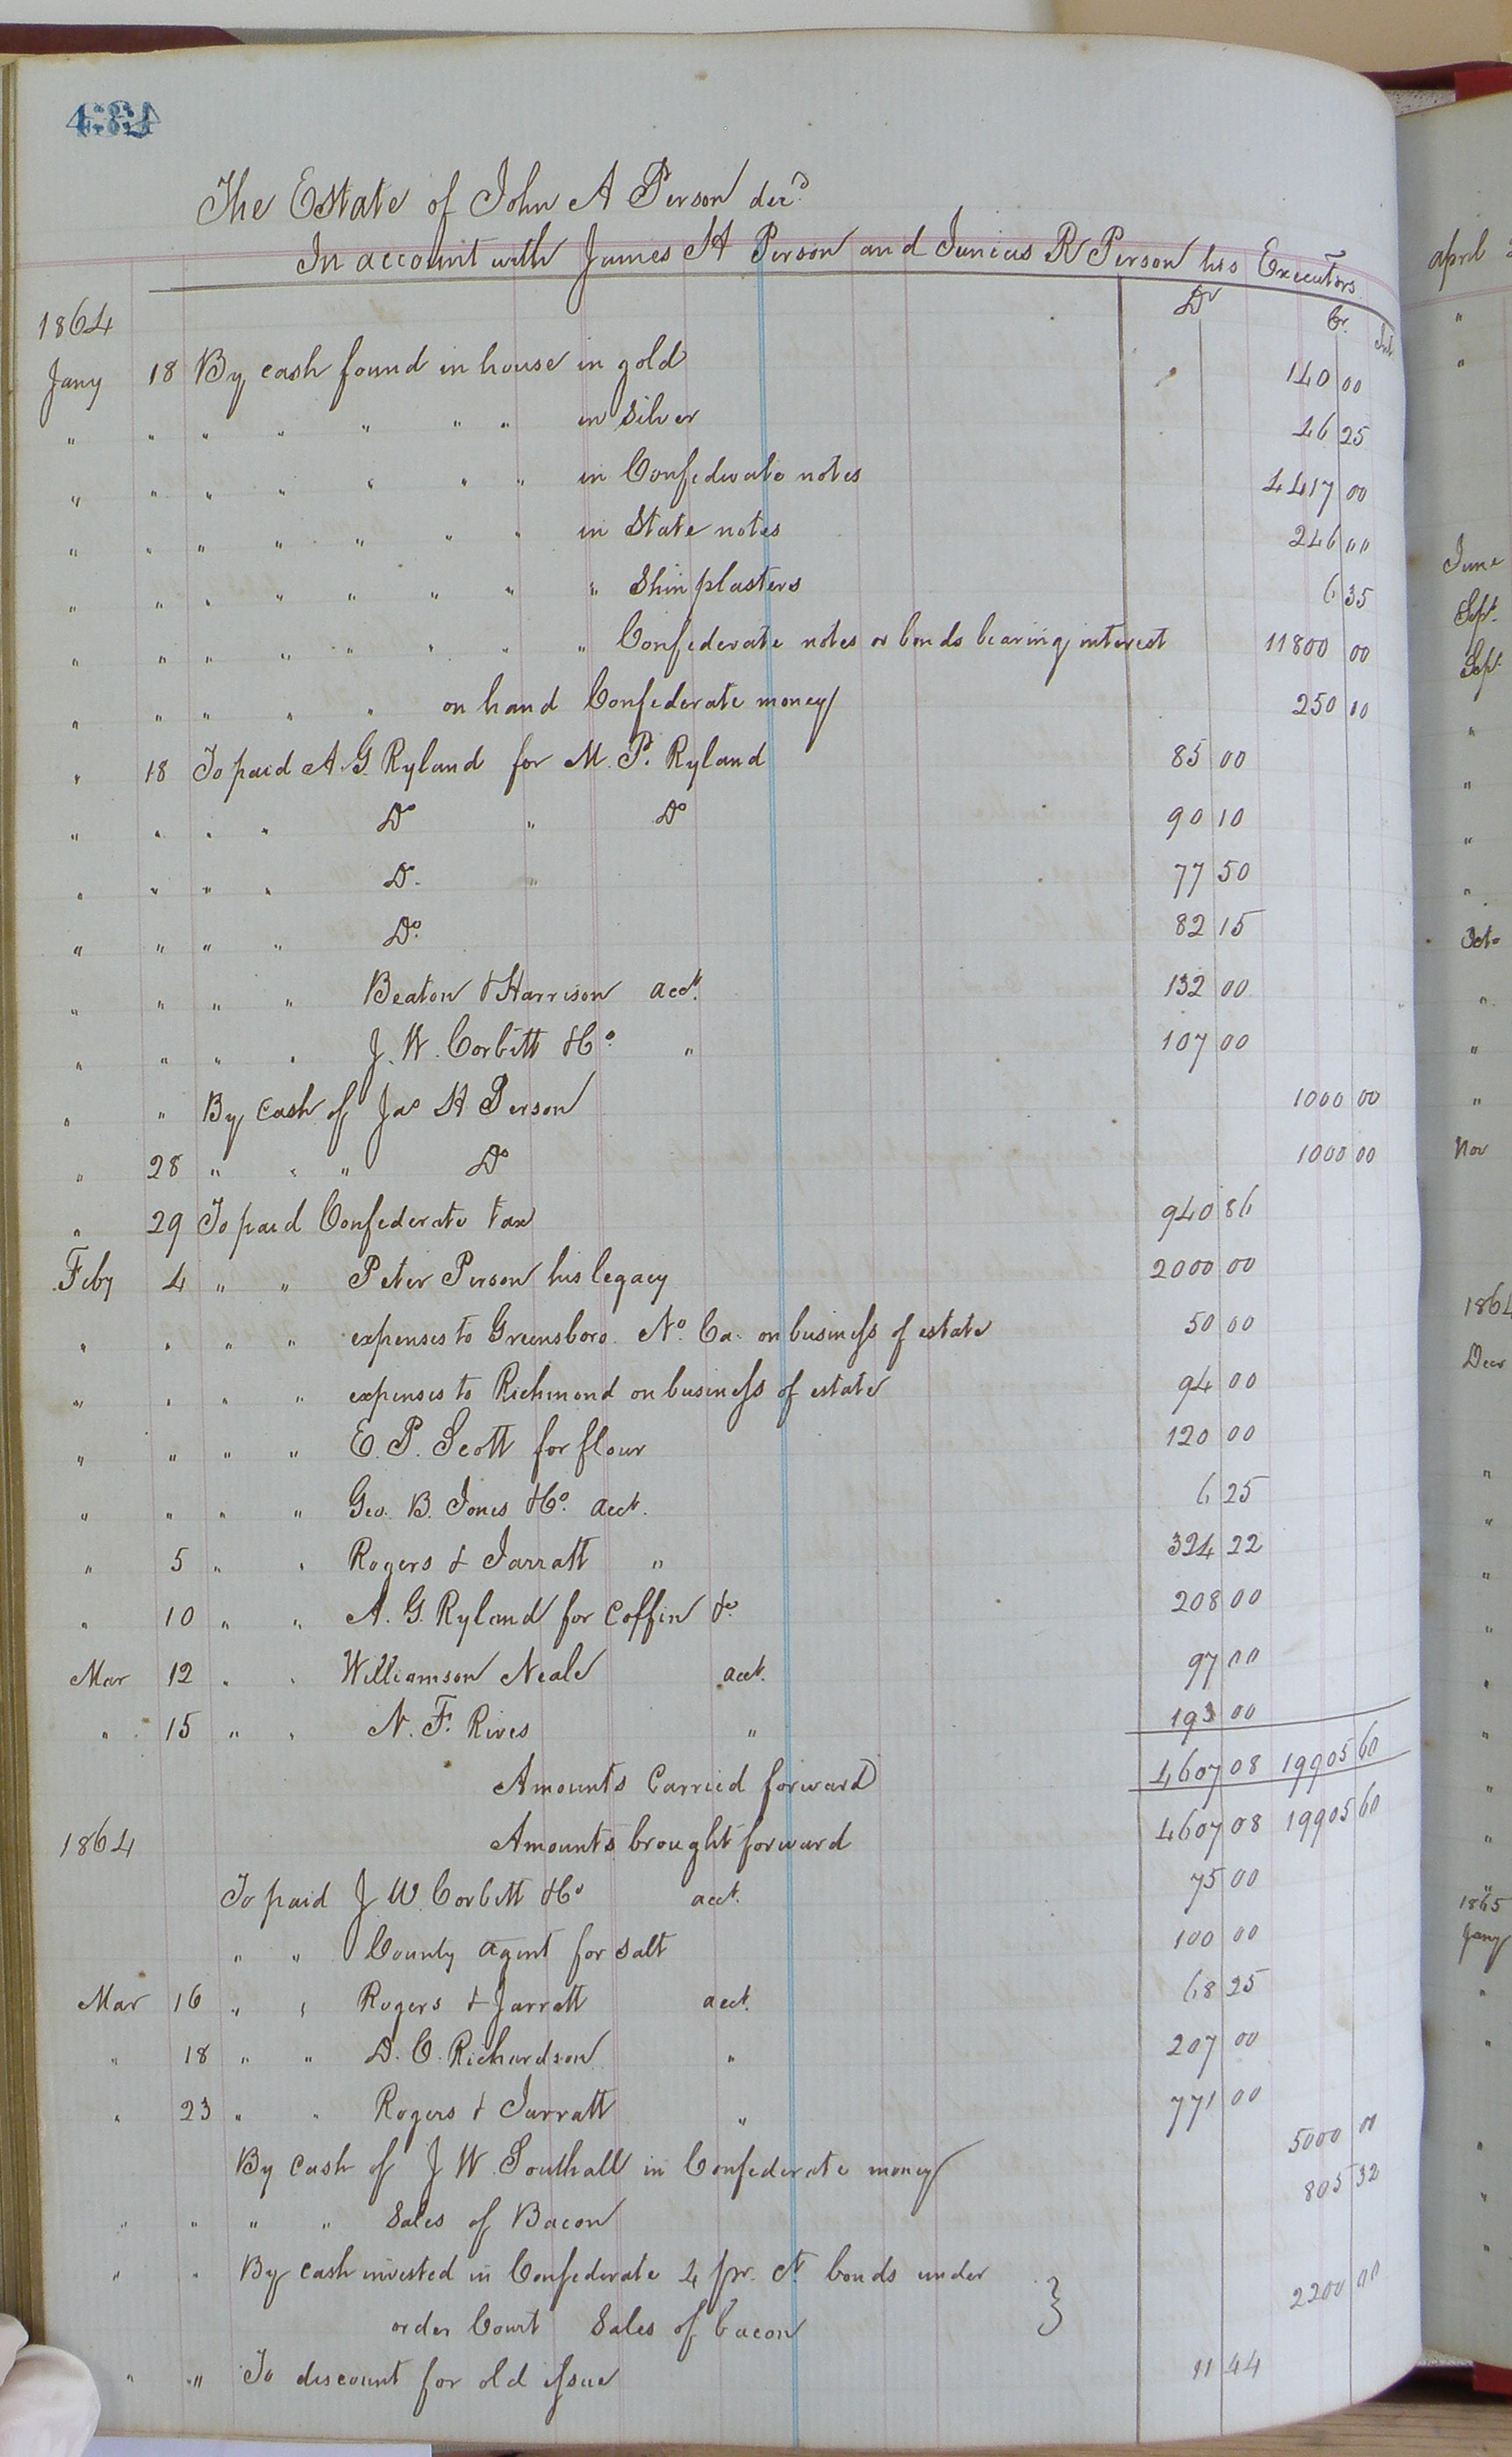 434
The Estate of John A Person decd
In account with James H Person and Junius R Person his Executors
Dr Cr. Int
1864
Jany 18 By cash found in house in gold 140 00
" " " " " " " in Silver 46 25
" " " " " " " in Confederate notes 4417 00
" " " " " " " in State notes 246 00
" " " " " " " " Shinplasters 6 35
" " " " " " " " Confederate notes or bonds bearing interest 11800 00
" " " " " on hand Confederate money 250 00
" 18 To paid A. G. Ryland for M. P. Ryland 85 00
" " " " Do " Do 90 10
" " " " Do " 77 50
" " " " Do 82 15
" " " " Beaton & Harrison acct. 132 00
" " " " J. W. Corbitt & Co " 107 00
" " By Cash of Jas H Person 1000 00
" 28 " " " Do 1000 00
" 29 To paid Confederate tax 940 86
Feby 4 " " Peter Person his legacy 2000 00
" " " " expenses to Greensboro No. Ca. on business of estate 50 00
" " " " expenses to Richmond on business of estate 94 00
" " " " E. P. Scott for flour 120 00
" " " " Geo. B. Jones & Co. acct. 6 25
" 5 " " Rogers & Jarratt " 324 22
" 10 " " A. G. Ryland for Coffin &c 208 00
Mar 12 " " Williamson Neale acct. 97 00
" 15 " " N. F. Rives " 193 00
Amounts Carried forward 4607 08 19905 60
1864 Amounts brought forward 4607 08 19905 60
To paid J W. Corbitt & Co acct. 75 00
" " County agent for salt 100 00
Mar 16 " " Rogers & Jarratt acct. 68 25
" 18 " " D. C. Richardson " 207 00
" 23 " " Rogers & Jarratt " 771 00
By Cash of J W. Southall in Confederate money 5000 00
" " " " Sales of Bacon 805 32
" " By Cash invested in Confederate 4 pr. ct bonds under
order Court Sales of bacon } 2200 00
" " To discount for old issue 11 44
april
"
"
June
Sept.
Sept
"
"
"
"
Octo
"
"
"
Nov
1864
Decr
"
"
"
"
"
"
"
"
1865
Jany
"
"
"
"
"